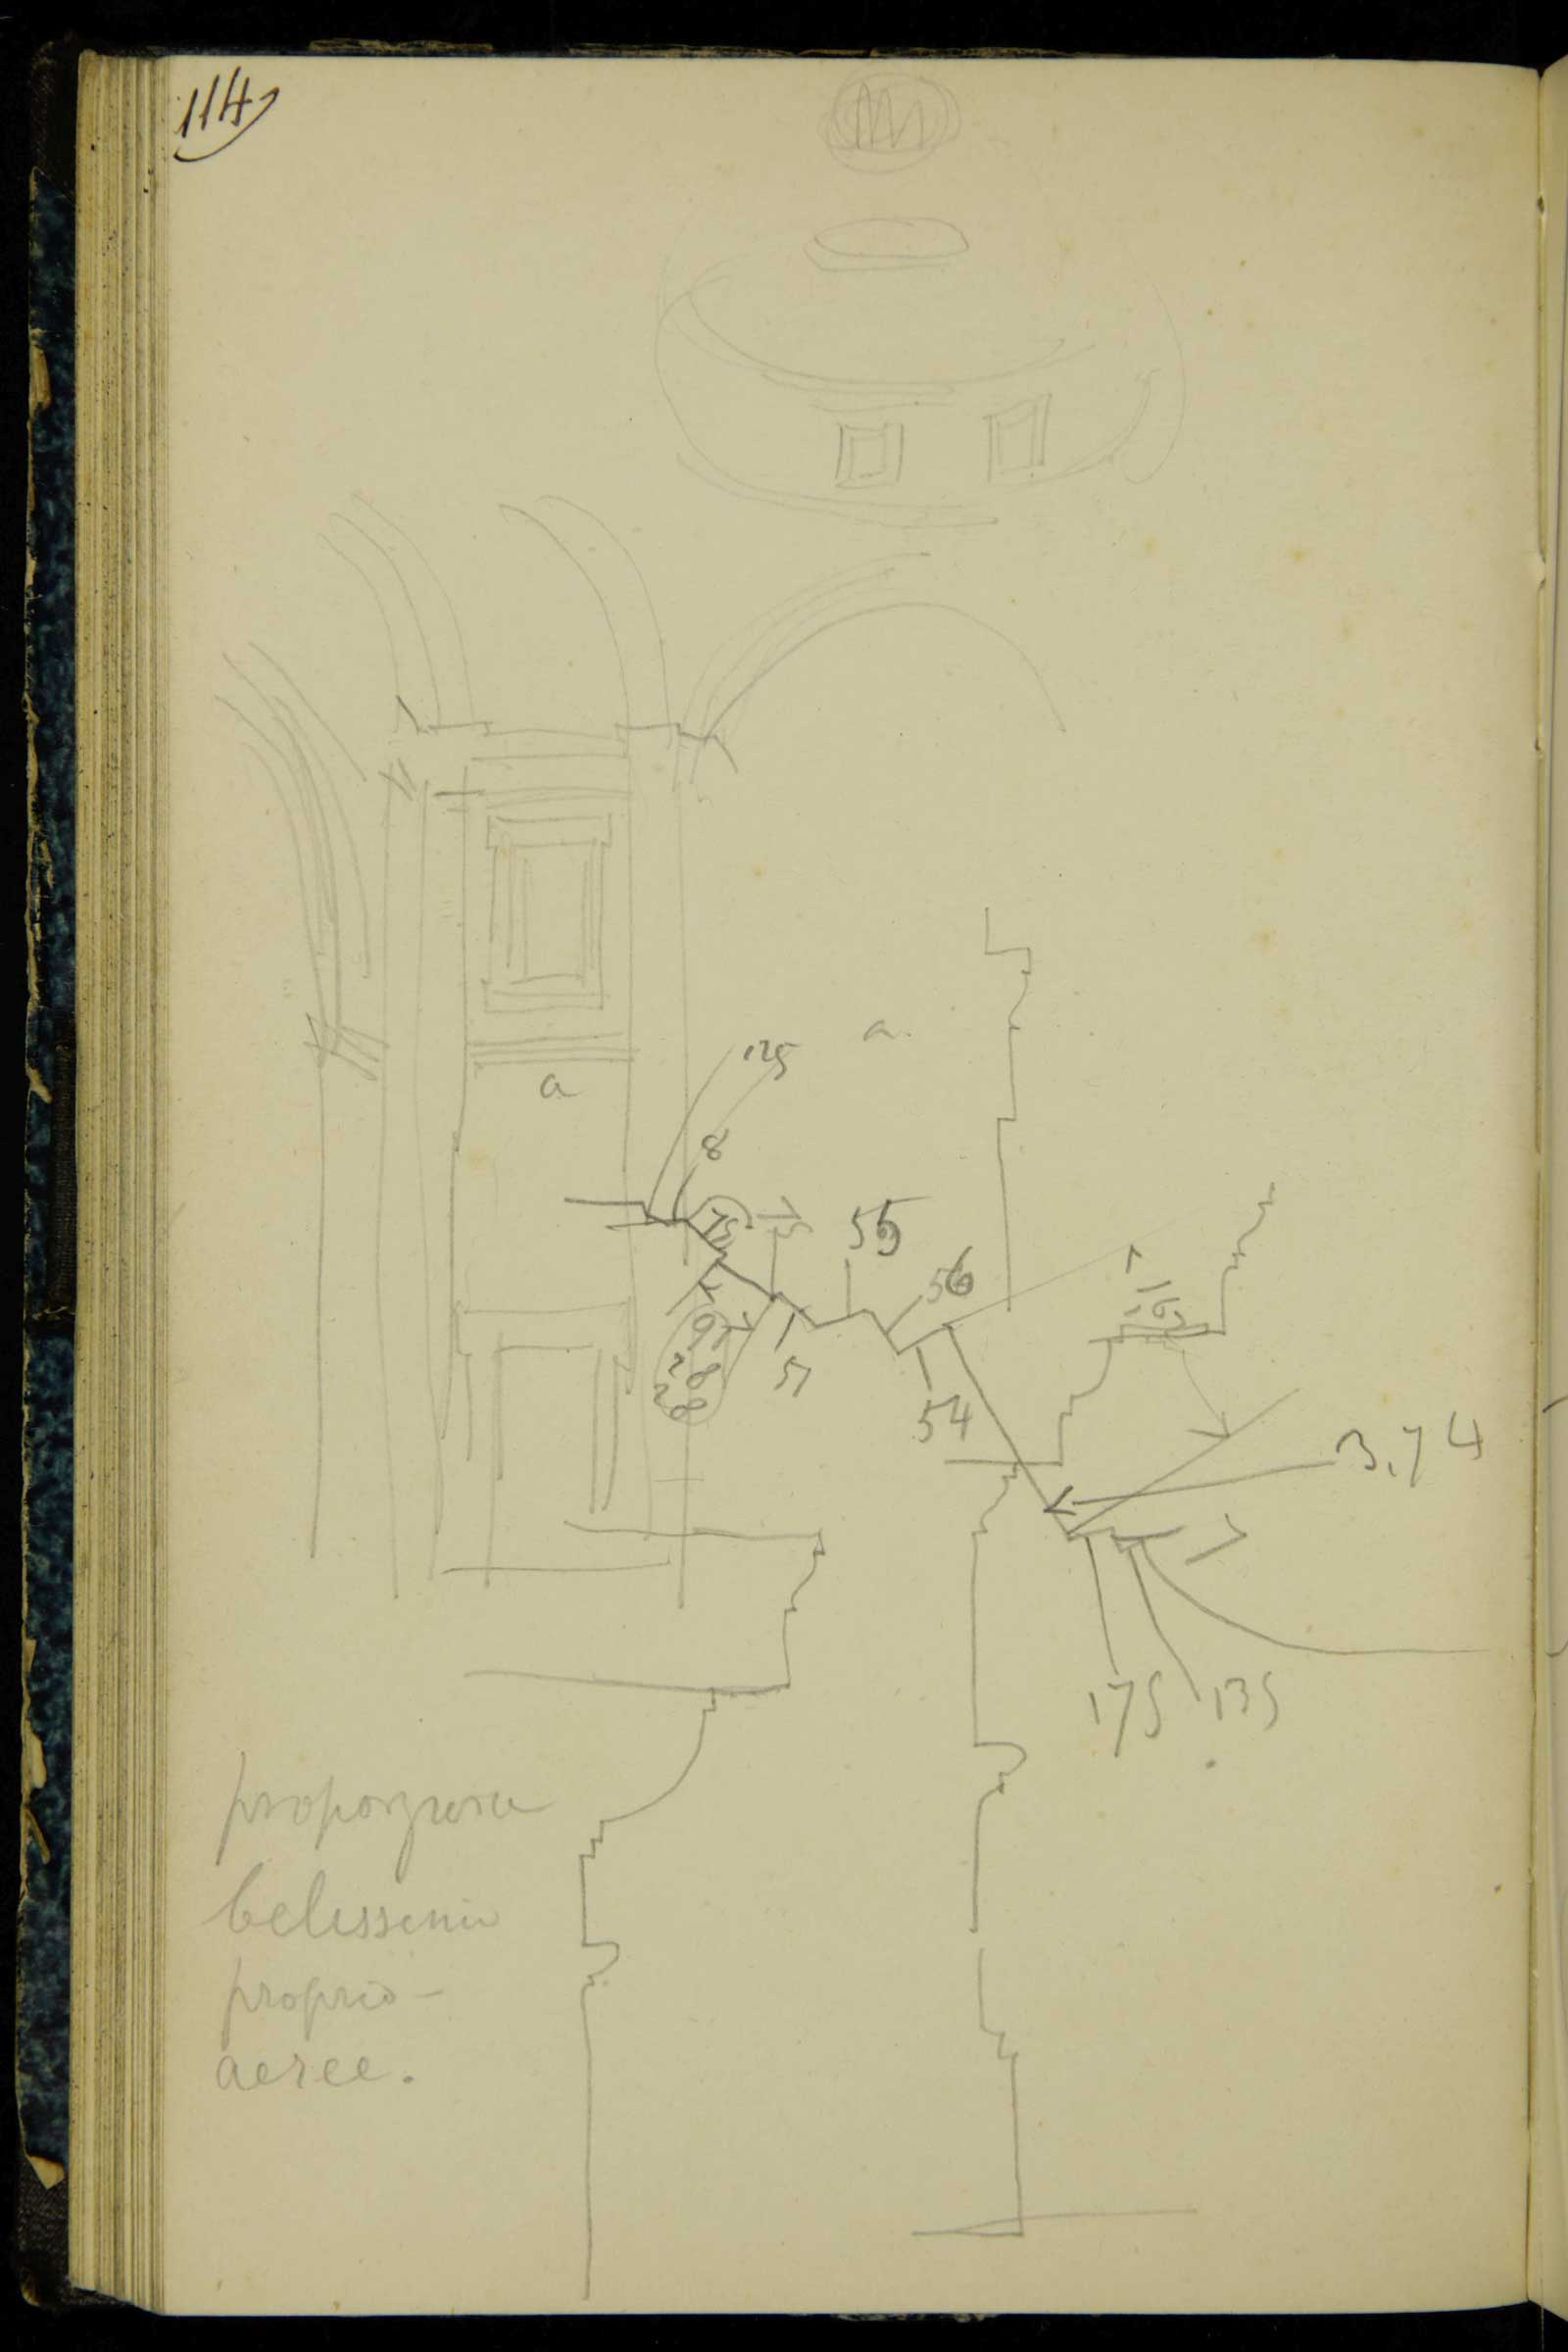 114
a
125
a
8
75
75
55
56
163
97
28
28
51
54
3,74
175
135
proporzione
belissime
proprio-
aeree.